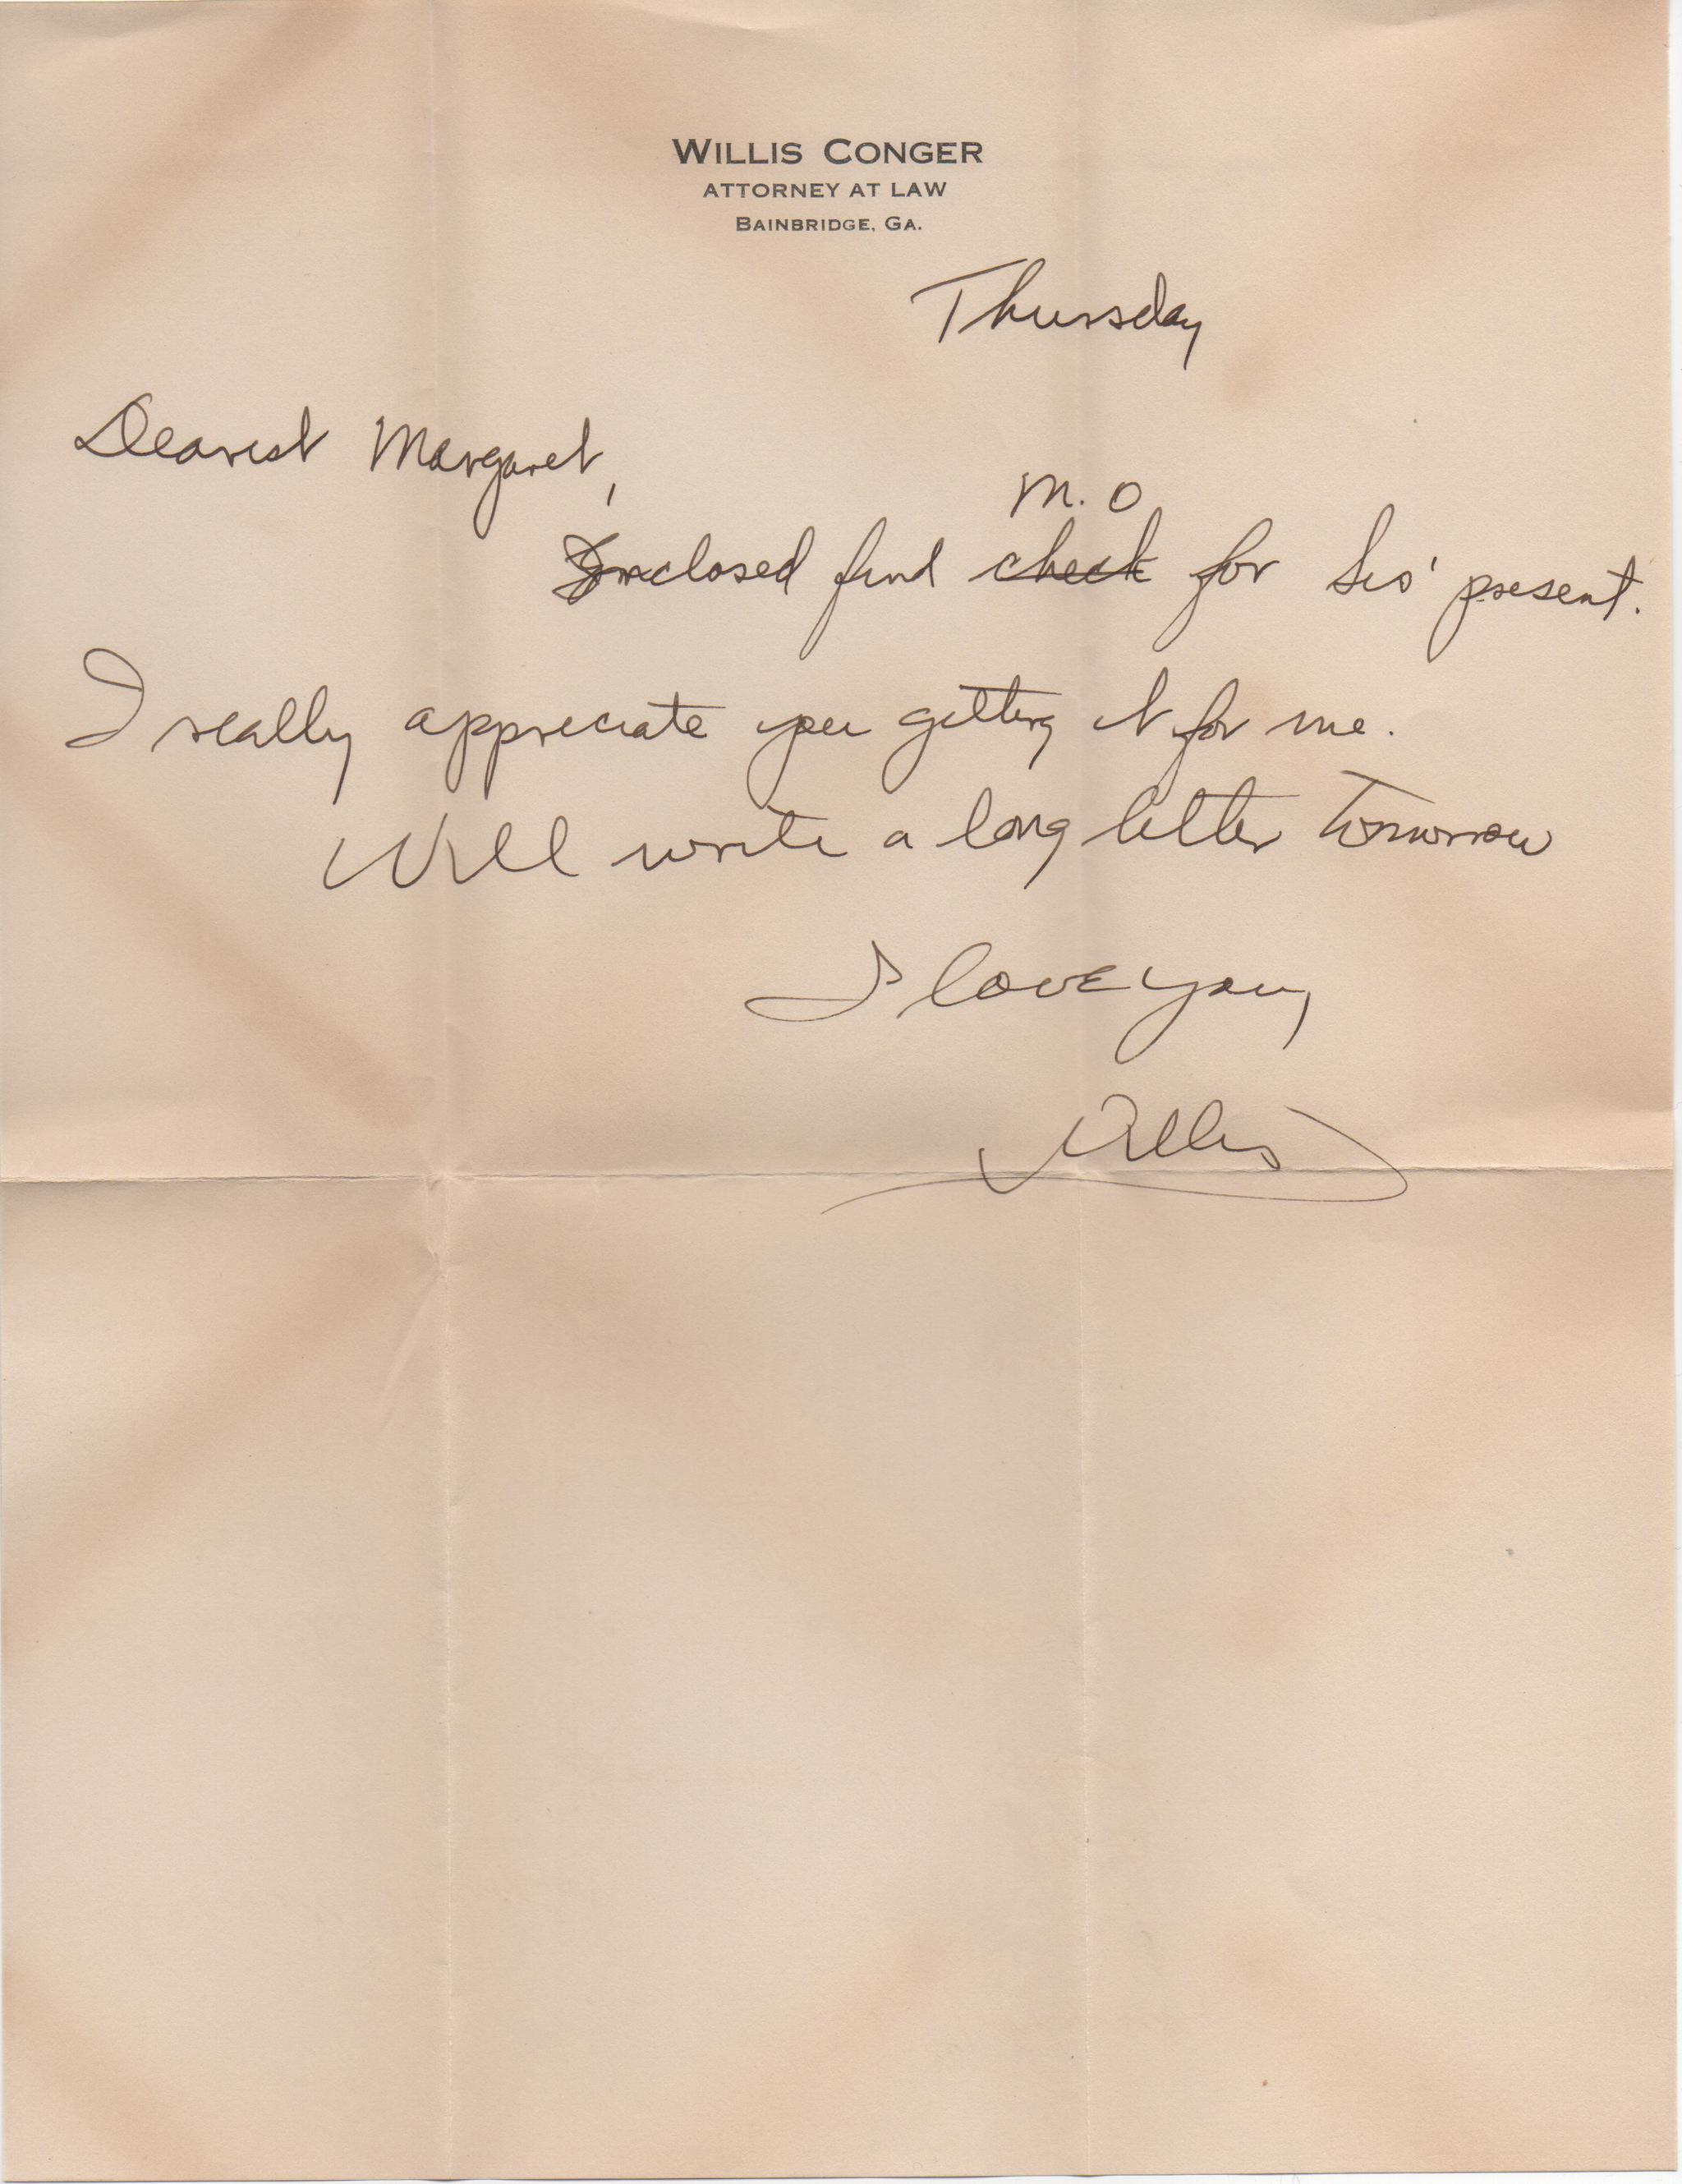 WILLIS CONGER
ATTORNEY AT LAW
BAINBRIDGE, GA.
Thursday
Dearest Margaret,
M. O
Inclosed find check for Sis' present.
I really appreciate you getting it for me.
Will write a long letter tomorrow
I love you,
Willis